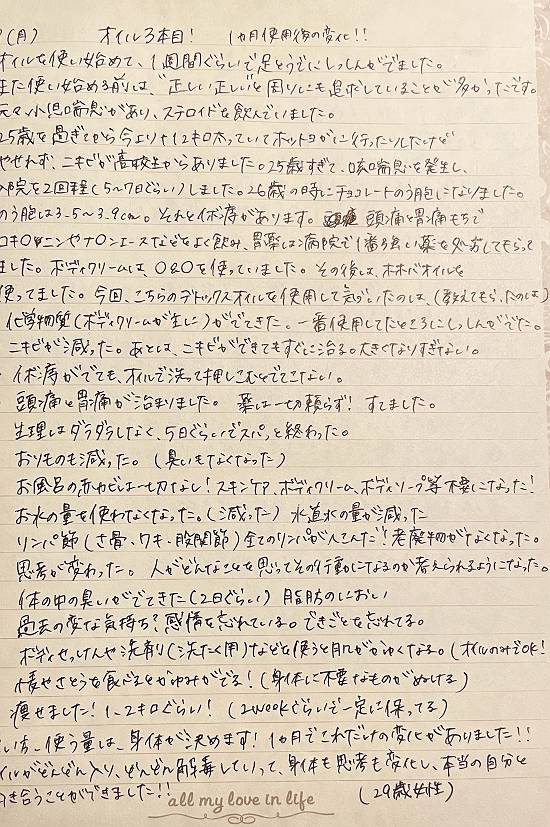 (月) オイル3本目! 1カ月使用後の変化!!
オイルを使い始めて、1週間ぐらいで足とうでにしっしんがでました。
また使い始める前は、"正しい正しい"と周りにも追求していることが多かったです。
元々、小児喘息があり、ステロイドを飲んでいました。
25歳を過ぎてから今より+12キロ太っていてホットヨガに行ったりしたけど
やせれず、ニキビが高校生からありました。25歳すぎて、咳喘息を発生し、
入院を2回程(5〜7日ぐらい)しました。26歳の時にチョコレートのう胞になりました。
のう胞は3.5〜3.9cm。それとイボ痔があります。頭痛と胃痛もちで
ロキ〇ソニンやナ〇ンエースなどをよく飲み、胃薬は病院で1番強い薬を処方してもらって
ました。ボディクリームは、〇&〇を使っていました。その後は、ホホバオイルを
使ってました。今回、こちらのデトックスオイルを使用して気づいたのは、(教えてもらったのは)
化学物質(ボディクリームが主に)がでてきた。一番使用してたところにしっしんがでた。
ニキビが減った。あとは、ニキビができてもすぐに治る。大きくなりすぎない。
・イボ痔がでても、オイルで洗って押しこむとでてこない。
・頭痛と胃痛が治まりました。薬は一切頼らず!すてました。
生理はダラダラしなく、5日ぐらいでスパッと終わった。
おりものも減った。(臭いもなくなった)
お風呂の赤カビは一切なし!スキンケア、ボディクリーム、ボディソープ等不要になった!
お水の量を使わなくなった。(減った) 水道水の量が減った
リンパ節(さ骨、ワキ、股関節)全てのリンパがへこんだ!老廃物がなくなった。
思考が変わった。人がどんなことを思ってその行動になるのか考えられるようになった。
体の中の臭いがでてきた(2日ぐらい) 脂肪のにおい
過去の変な気持ち?感情を忘れている。できごとを忘れてる。
ボディせっけんや洗剤(洗たく用)などを使うと肌がかゆくなる。(オイルのみでOK!
小麦やさとうを食べるとかゆみがでる!(身体に不要なものがぬける)
痩せました!1、2キロぐらい!(2weekぐらいで一定に保ってる)
使う量は、身体が決めます!1カ月でこれだけの変化がありました!!
オイルがどんどん入り、どんどん解毒していって、身体も思考も変化し、本当の自分と
向き合うことができました!! (29歳女性)
all my love in life